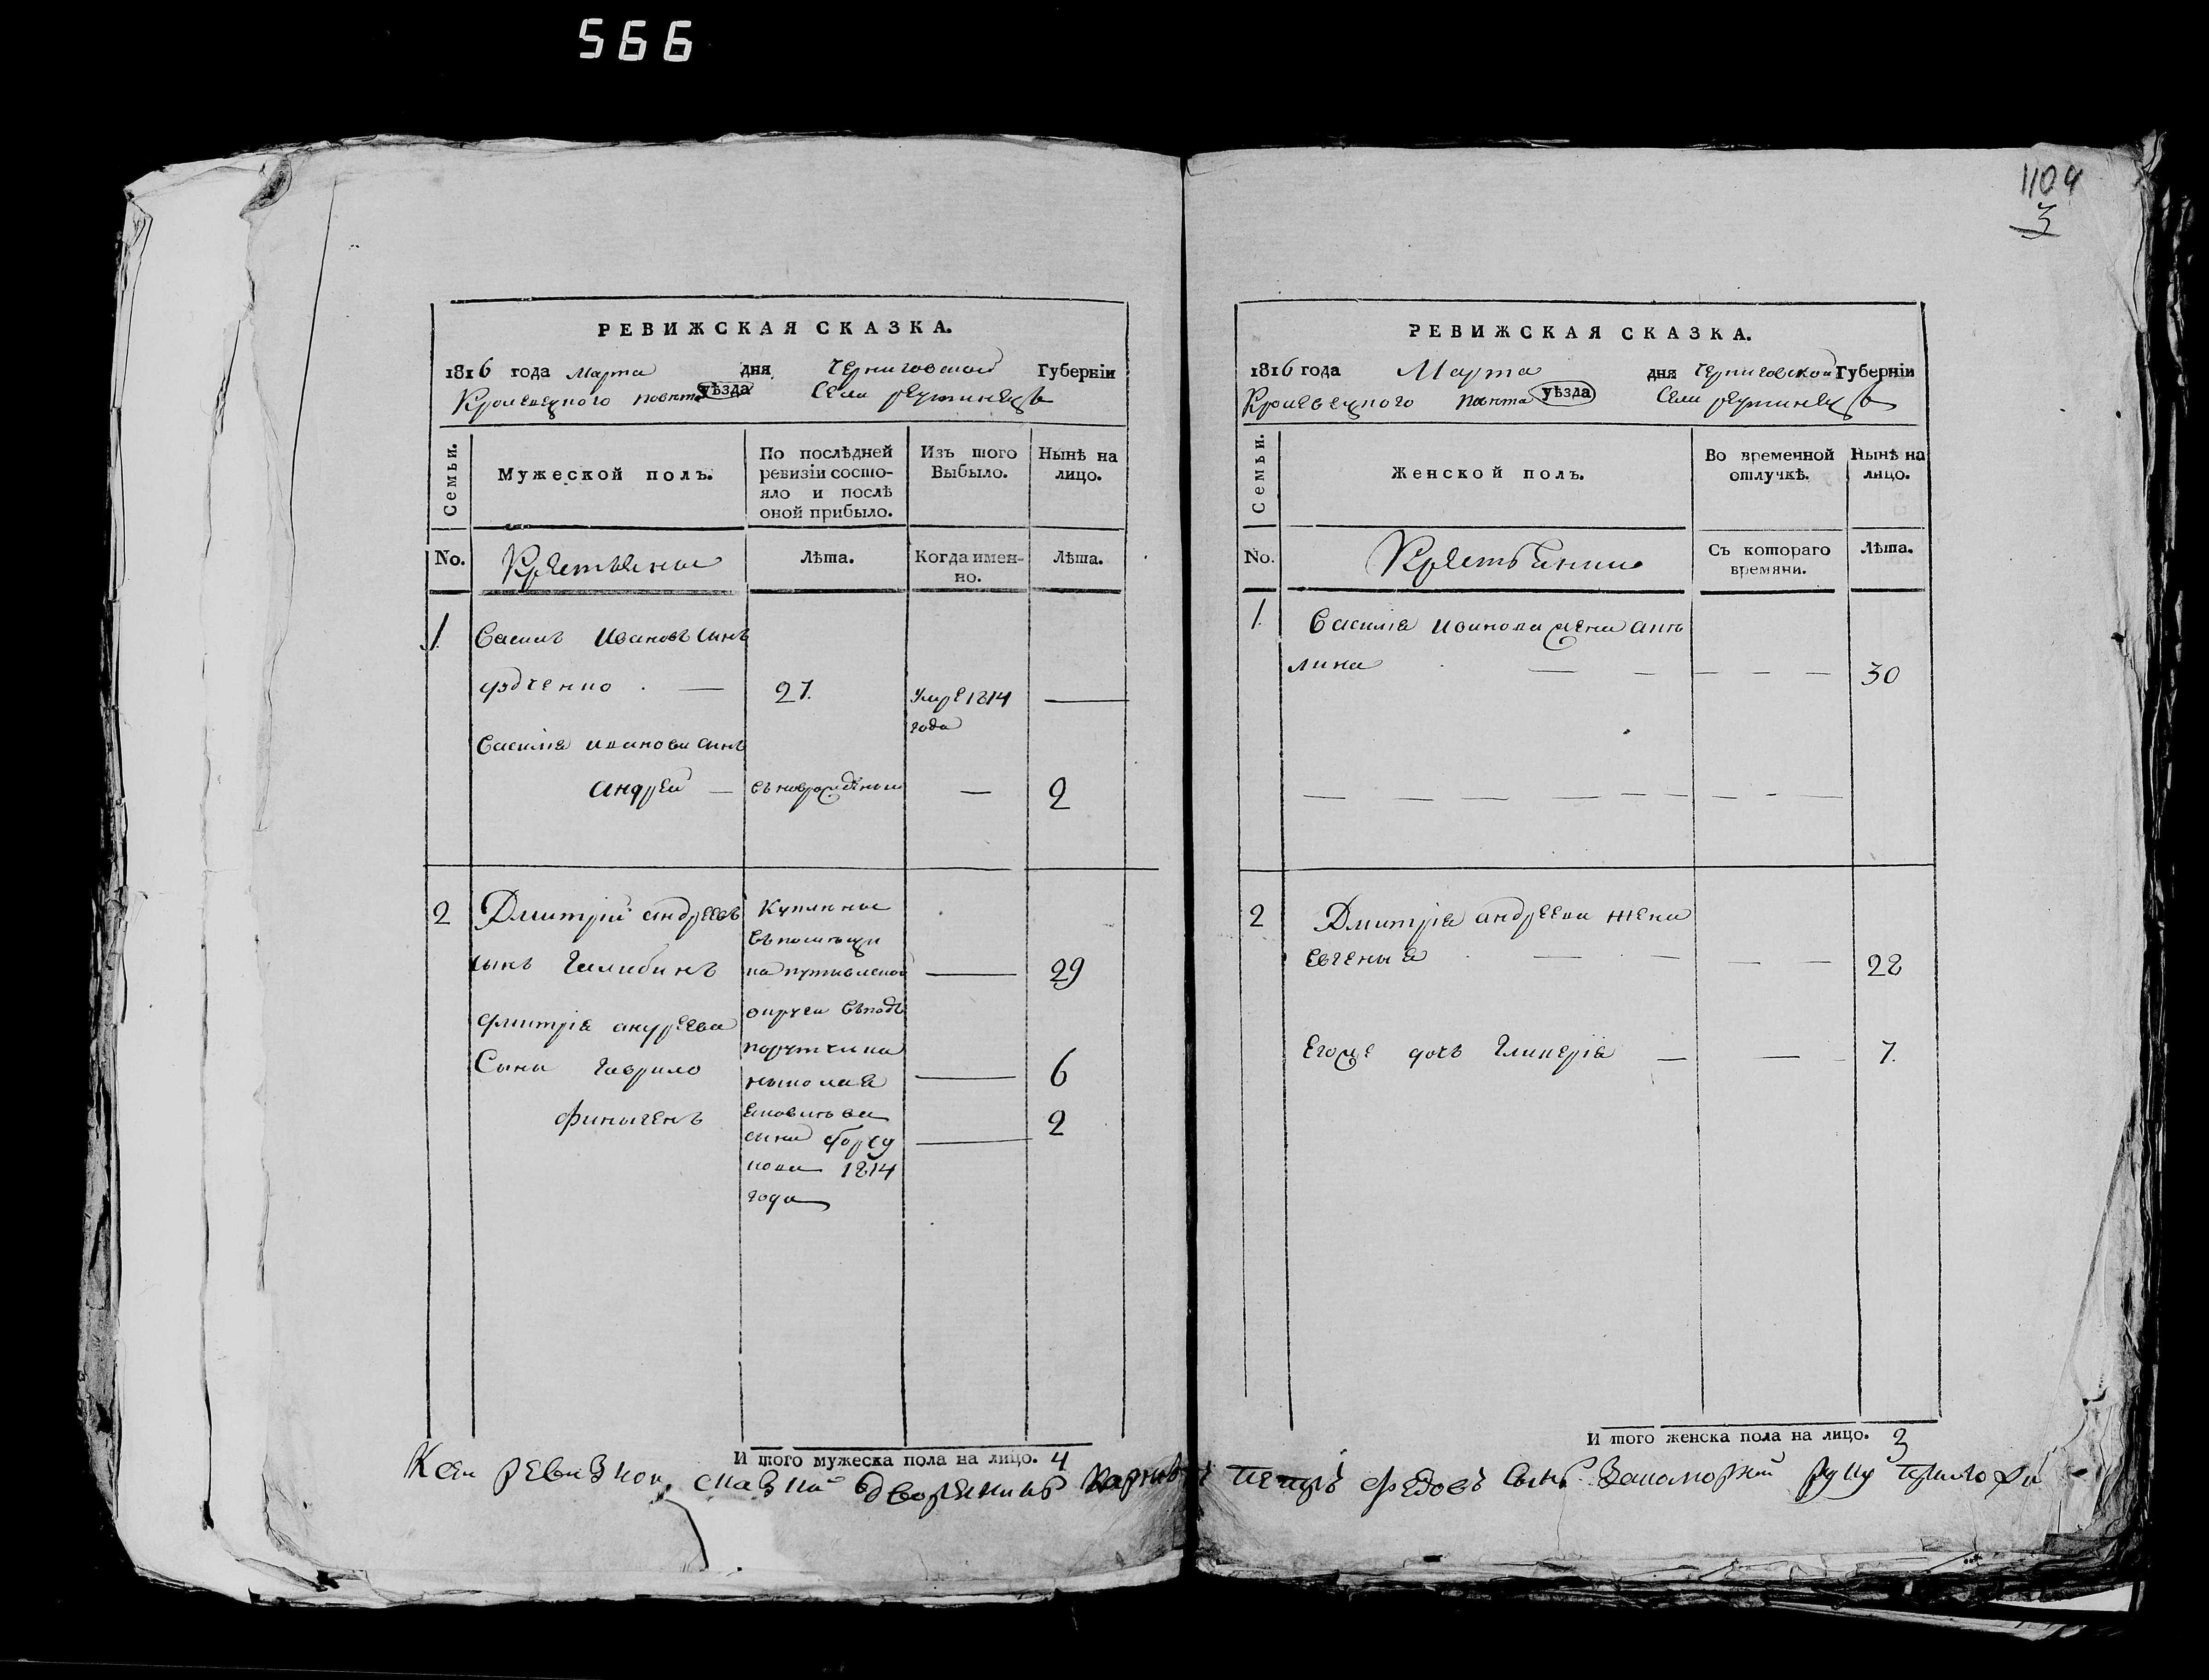 566
1104
3
РЕВИЖСКАЯ СКАЗКА.
1816 года Марта дня Черниговской Губерніи
Кролевецкого повѣта уѣзда Села реутинецъ
Семьи.
Мужеской полъ.
По послѣдней ревизіи состояло и послѣ оной прибыло.
Изъ того Выбыло.
Нынѣ на лицо.
No.
Крестьяне
Лѣта.
Когда именно.
Лѣта.
1 Василь Ивановъ сынъ
27. Умре 1814 —
года
Василія иванова сынъ
андрей — новорожденный — 2
2 Дмитрій андреевъ Купленные
сынъ въ
— 29
дмитрія андреева округи
Сыны гаврило порутчика
николая — 6
2
сина
1814
года
И того мужеска пола на лицо. 4
РЕВИЖСКАЯ СКАЗКА.
1816 года Марта дня Черниговской Губерніи
Кролевецкого повѣта уѣзда Села реутинецъ
Семьи.
Женской полъ.
Во временной отлучкѣ.
Нынѣ на лицо.
No.
Съ котораго времяни.
Лѣта.
1. Василія иванова жена аку
лина — — — — — 30
— — — — — — — — —
2 Дмитрія андреева жена
Евгенія — — — — 28
Егоже дочь Гликерія — — 7.
И того женска пола на лицо. 3
К сей ревизкой сказки дворянинъ петръ федоръ сынъ руку приложи